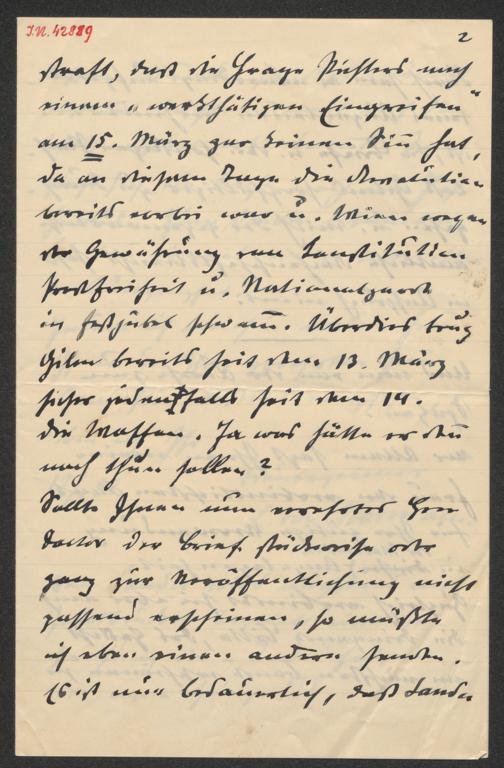 J.N. 42889
2
straft, daß die Frage Pichlers nach
einem „werkthätigen Eingreifen“
am 15. März gar keinen Sinn hat,
da an diesem Tage die Revolution
bereits vorbei war u. Wien wegen
der Gewährung von Constitution
Preßfreiheit u. Nationalgarde
in Festjubel schwamm. Überdies trug
Gilm bereits seit dem 13. März
sicher jedenfalls seit dem 14.
die Waffen. Ja was hätte er denn
noch thun sollen?
Sollte Ihnen nun verehrter Herr
Doctor der Brief stückweise oder
ganz zur Veröffentlichung nicht
passend erscheinen, so müßte
ich eben einen andern senden.
Es ist nur bedauerlich, daß